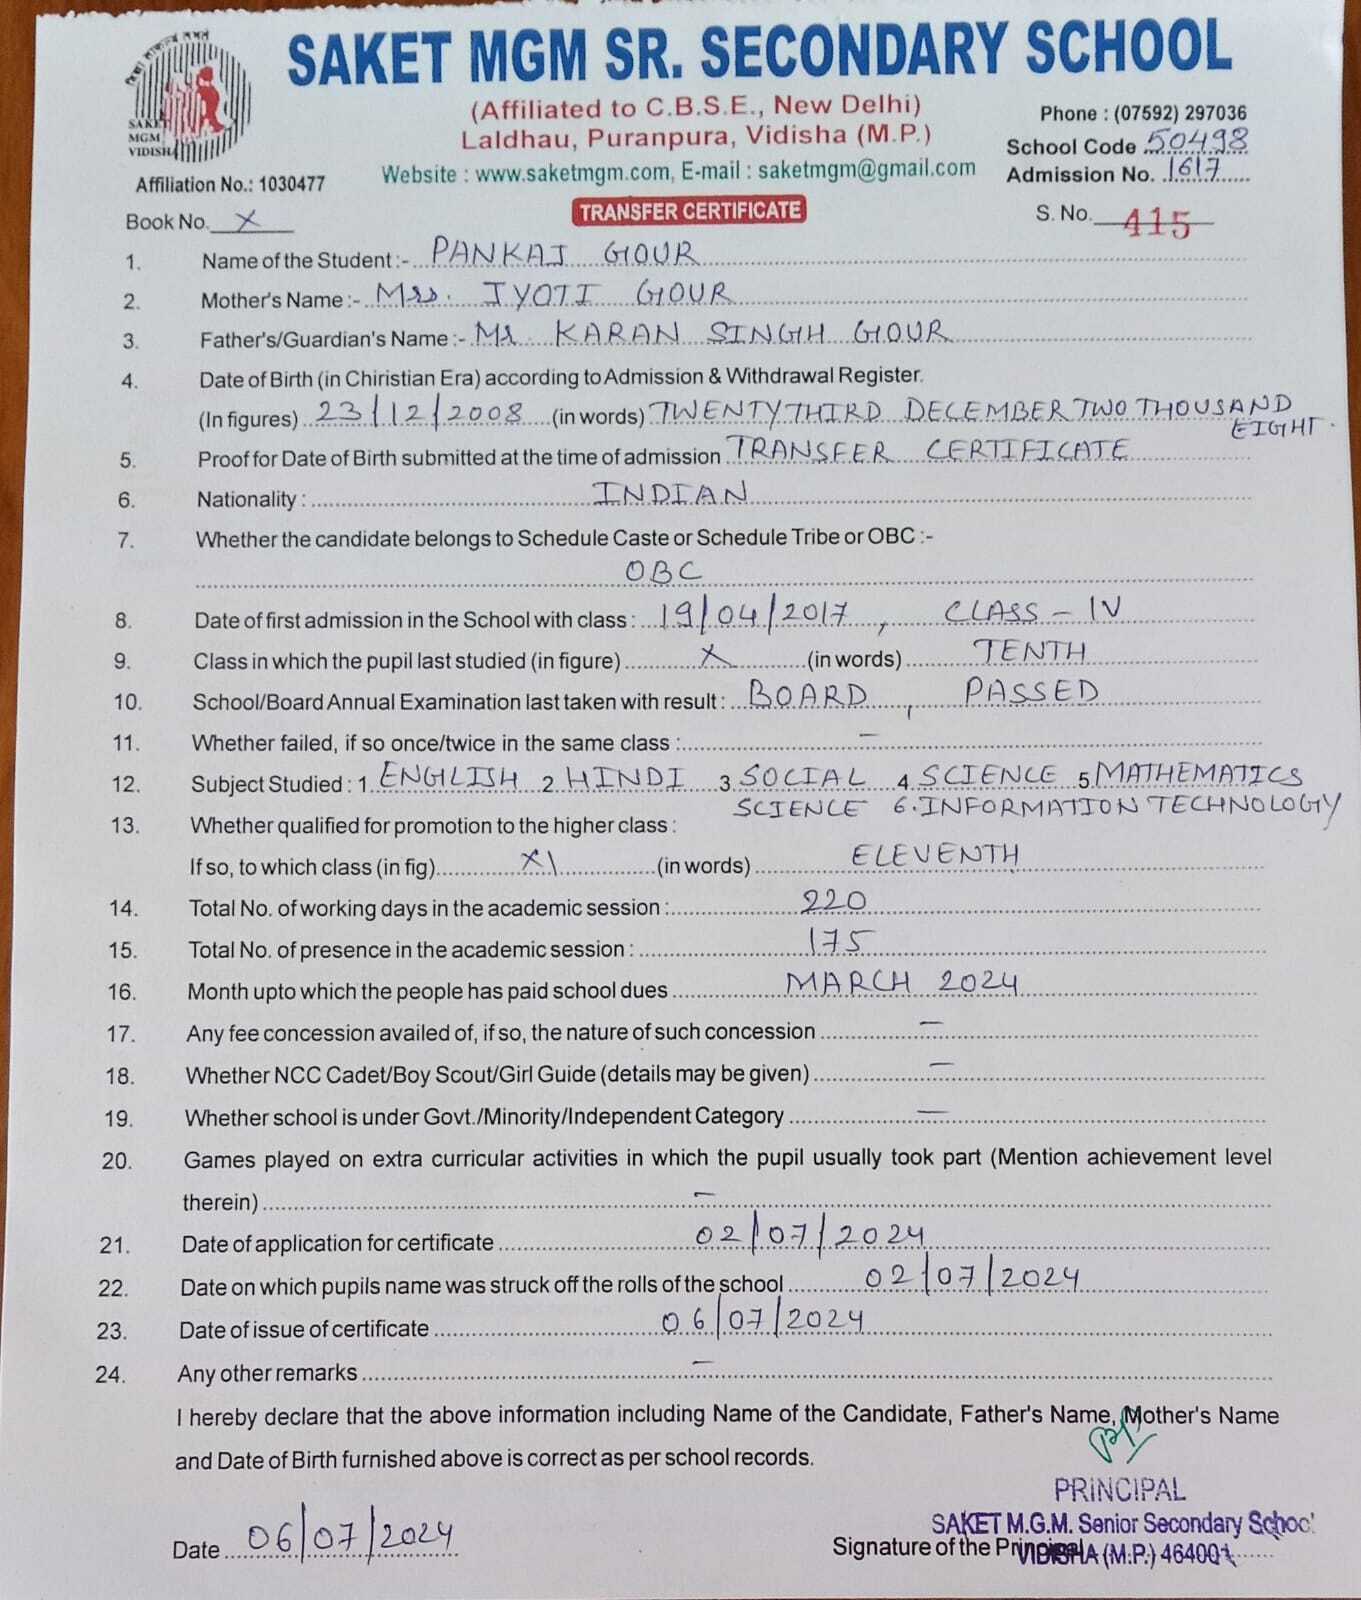 SAKET MGM SR. SECONDARY SCHOOL
(Affiliated to C.B.S.E., New Delhi)
Laldhau, Puranpura, Vidisha (M.P.)
Website : www.saketmgm.com, E-mail : saketmgm@gmail.com
SAKET
MGM
VIDISHA
Affiliation No.: 1030477
Phone : (07592) 297036
School Code 50498
Admission No. 1617
Book No. X
TRANSFER CERTIFICATE
S. No. 415
1. Name of the Student :- PANKAJ GOUR
2. Mother's Name :- Mrs. JYOTI GOUR
3. Father's/Guardian's Name :- Mr. KARAN SINGH GOUR
4. Date of Birth (in Chiristian Era) according to Admission & Withdrawal Register.
(In figures) 23/12/2008 (in words) TWENTY THIRD DECEMBER TWO THOUSAND
EIGHT.
5. Proof for Date of Birth submitted at the time of admission TRANSFER CERTIFICATE
6. Nationality : INDIAN
7. Whether the candidate belongs to Schedule Caste or Schedule Tribe or OBC :-
OBC
8. Date of first admission in the School with class : 19/04/2017, CLASS - IV
9. Class in which the pupil last studied (in figure) X (in words) TENTH
10. School/Board Annual Examination last taken with result : BOARD, PASSED
11. Whether failed, if so once/twice in the same class : -
12. Subject Studied : 1. ENGLISH 2. HINDI 3. SOCIAL 4. SCIENCE 5. MATHEMATICS
SCIENCE 6. INFORMATION TECHNOLOGY
13. Whether qualified for promotion to the higher class :
If so, to which class (in fig) XI (in words) ELEVENTH
14. Total No. of working days in the academic session : 220
15. Total No. of presence in the academic session : 175
16. Month upto which the people has paid school dues MARCH 2024
17. Any fee concession availed of, if so, the nature of such concession -
18. Whether NCC Cadet/Boy Scout/Girl Guide (details may be given) -
19. Whether school is under Govt./Minority/Independent Category -
20. Games played on extra curricular activities in which the pupil usually took part (Mention achievement level
therein) -
21. Date of application for certificate 02/07/2024
22. Date on which pupils name was struck off the rolls of the school 02/07/2024
23. Date of issue of certificate 06/07/2024
24. Any other remarks -
I hereby declare that the above information including Name of the Candidate, Father's Name, Mother's Name
and Date of Birth furnished above is correct as per school records.
PRINCIPAL
SAKET M.G.M. Senior Secondary School
Date 06/07/2024
Signature of the Principal
VIDISHA (M.P.) 464001